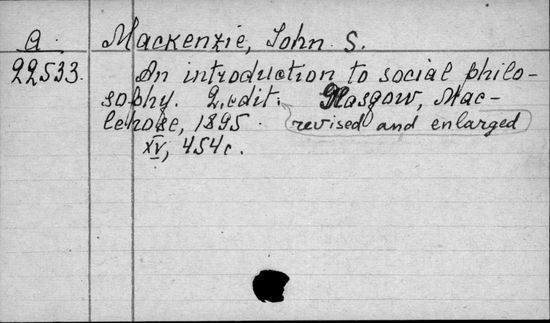 a. Mackenzie, John S.
22533. An introduction to social philo-
sophy. 2. edit. Glasgow, Mac-
lehose, 1895. revised and enlarged
XV, 454 c.